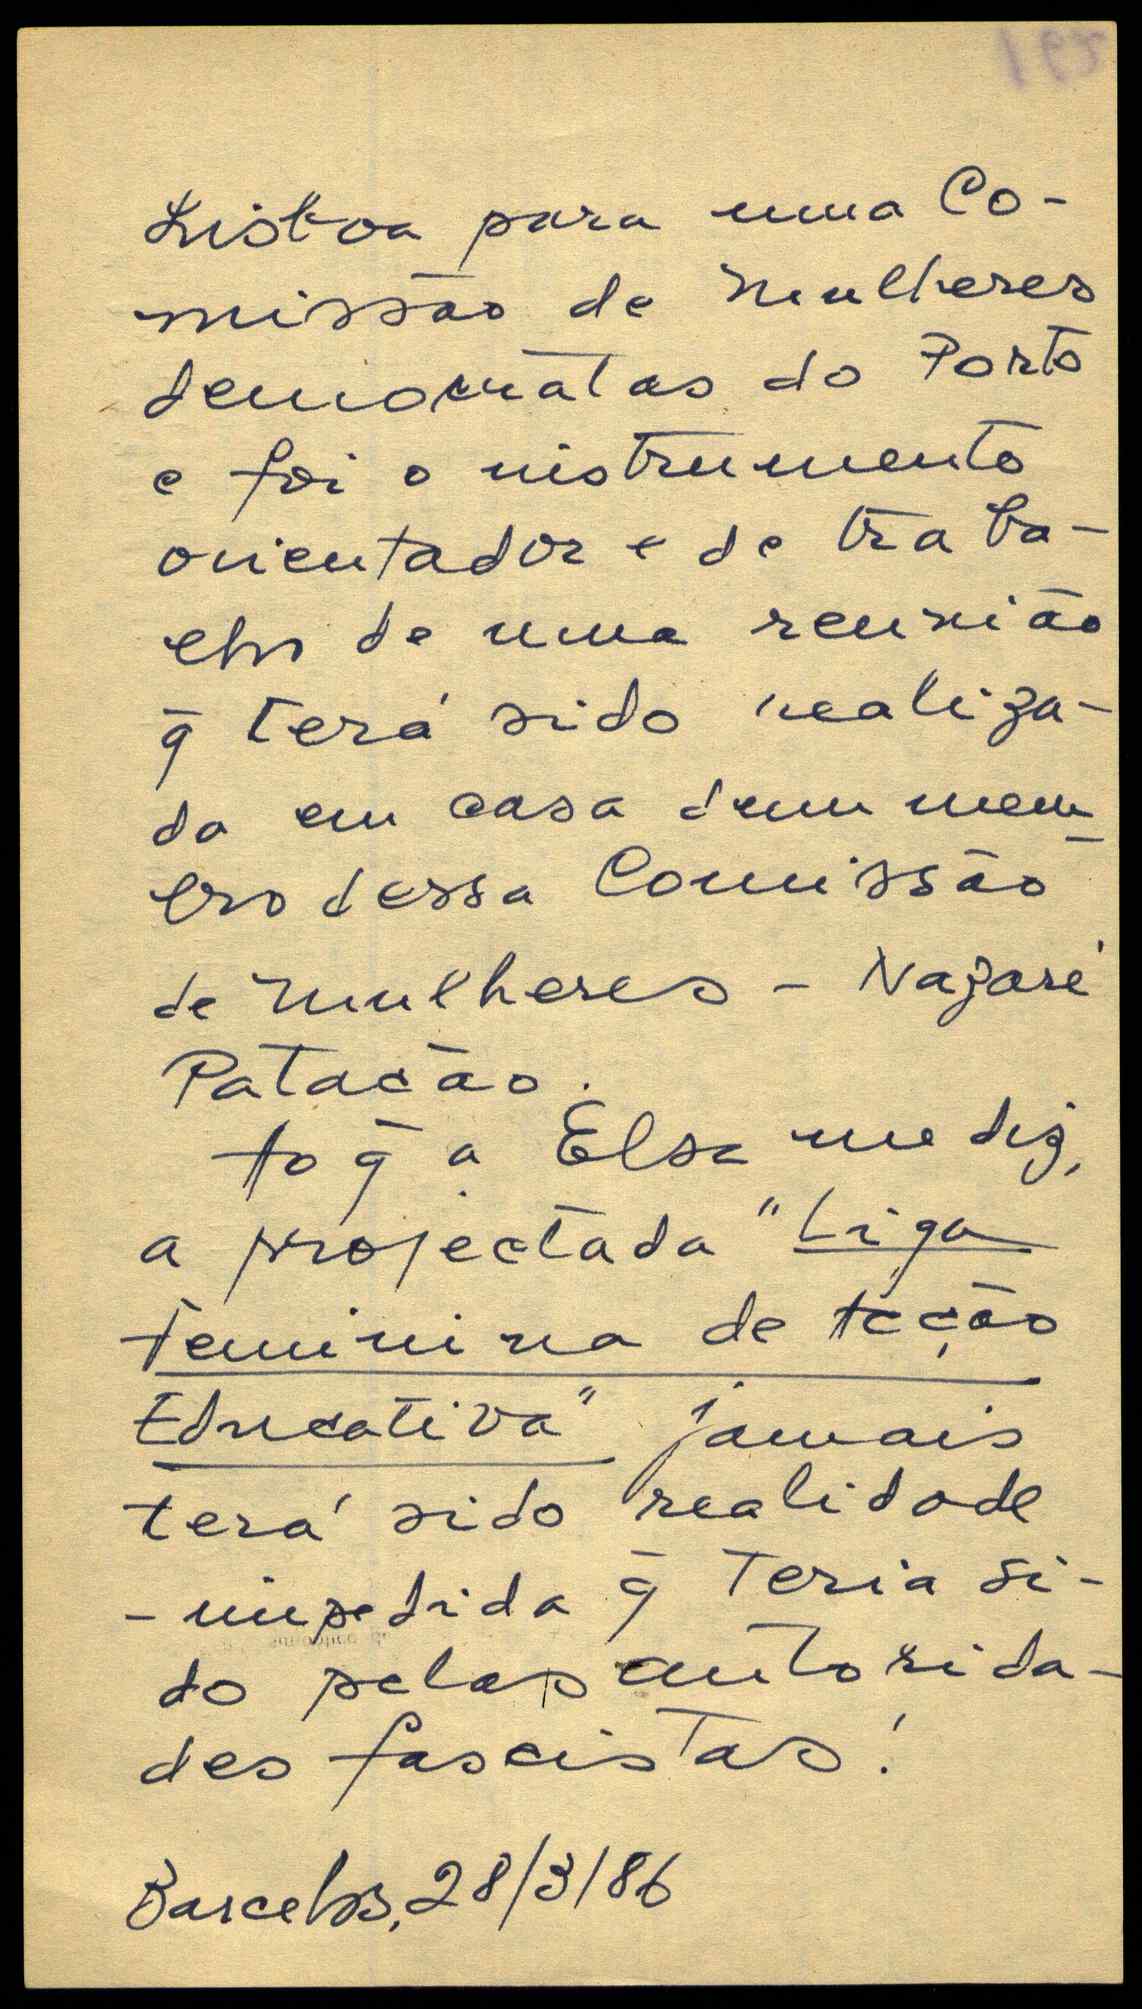 Lisboa para uma Co-
missão de mulheres
democratas do Porto
e foi o instrumento
orientador e de traba-
lho de uma reunião
q̄ terá sido realiza-
da em casa dum mem-
bro dessa Comissão
de mulheres - Nazaré
Patacão.
to q̄ a Elsa me diz,
a projectada "Liga
Feminina de Acção
Educativa" jamais
terá sido realidade
- impedida q̄ teria si-
do pelas autorida-
des fascistas!
Barcelos, 28/3/86